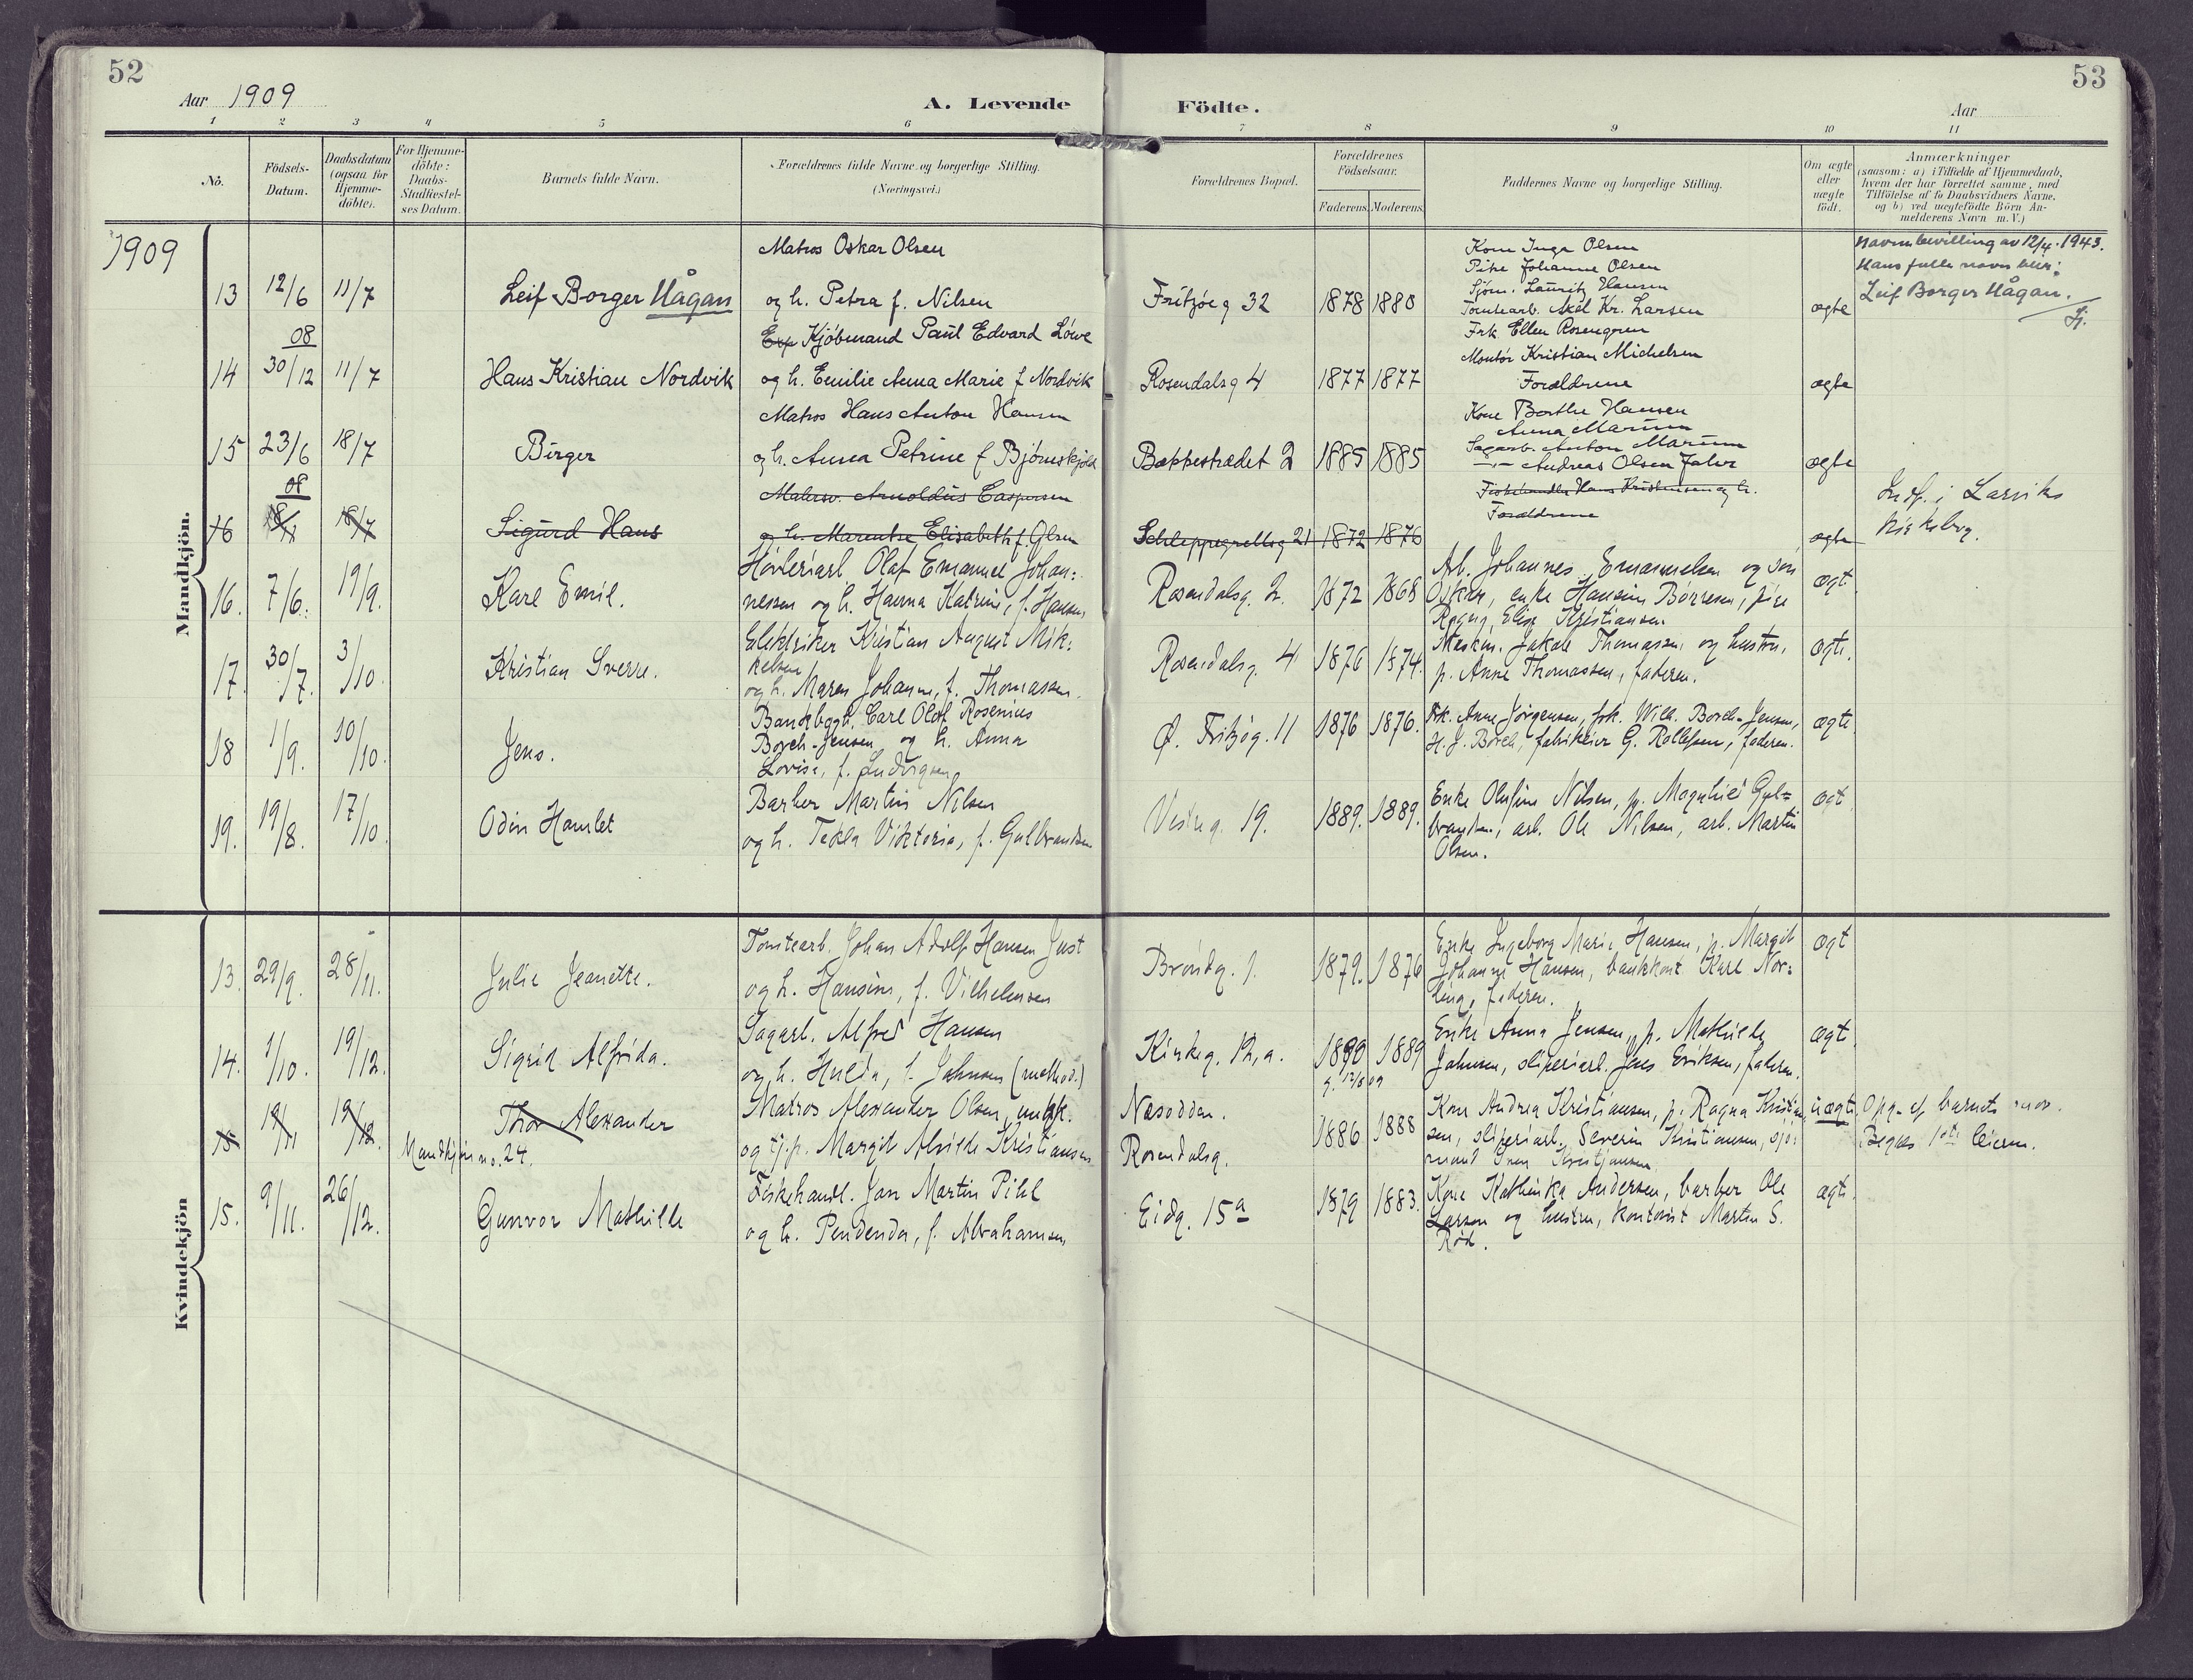 52
53
Aar 1909
A. Levende
Födte.
Aar
1
2
3
4
5
6
7
8
9
10
11
No.
Födsels-
Datum.
Daabsdatum
(ogsaa for
Hjemme-
döbte).
For Hjemme-
döbte:
Daabs-
Stadfæstel-
ses Datum.
Barnets fulde Navn.
Forældrenes fulde Navne og borgerlige Stilling.
(Næringsvei.)
Forældrenes Bopæl.
Forældrenes
Födselsaar.
Faderens.
Moderens.
Faddernes Navne og borgerlige Stilling.
Om ægte
eller
uægte
födt.
Anmærkninger
(saasom: a) i Tilfælde af Hjemmedaab,
hvem der har forrettet samme, med
Tilföielse af to Daabsvidners Navne.
og b) ved uægtefödte Börn An-
melderens Navn m.V.)
1909
Mandkjön.
13 12/6 11/7
Leif Borger Hågan
Matros Oskar Olsen
og h. Petra f. Nilsen
Fritzøeg 32
1878 1880
Kone Inga Olsen
Pike Johanne Olsen
Sjøm. Lauritz Hansen
Tomtearb. Aksel Kr. Larsen
Frk Ellen Rosengren
Montør Kristian Michelsen
ægte
Navnebevilling av 12/4. 1943.
Hans fulle navn blir:
Leif Borger Hågan.
14 08 30/12 11/7
Hans Kristian Nordvik
Exp Kjøbmand Paul Edvard Löwe
og h. Emilie Anna Marie f Nordvik
Rosendalsg 4
1877 1877
Forældrene
ægte
15 23/6 18/7
Birger
Matros Hans Anton Hansen
og h. Anna Petrine f Bjørnskjold
Bøkkestrædet 2
1885 1885
Kone Berthe Hansen
Anna
Sagarb. Anton
Andreas Olsen
ægte
16 08 18/7
Sigurd Hans
Malersv. Arnoldus Caspersen
og h. Marentse Elisabeth f. Olsen
Schleppegrellsg 21
1872 1876
Fiskehandler Hans Kristensen og h.
Forældrene
ægte
Indf. i Larviks
16. 7/6. 19/9.
Kare Emil.
Høvleriarb Olaf Emanuel Johan:
nessen og h. Hanna Katrine, f. Hansen
Rosendalsg. 2.
1872 1868
Arb. Johannes Emanuelsen og søn
Oskar, enke Hansine Børresen, pike
Ragna Elise Kristiansen
ægt.
17. 30/7. 3/10.
Kristian Sverre.
Elektriker Kristian August Mik:
kelsen
og h. Maren Johanne, f. Thomassen.
Rosendalsg. 4
1876 1874.
Maskin. Jakob Thomassen og hustru,
p. Anne Thomassen, faderen.
ægte.
18 1/9. 10/10.
Jens.
Bankbogh. Carl Olaf Rosenius
Borch-Jensen og h. Anna
Lovise, f. Ludvigsen
Ø. Fritzøg. 11
1876 1876.
Frk. Anne Jørgensen, frk. Wilh. Borch-Jensen,
H. J. Borch, fabrikeier G. Rollefsen, faderen.
ægte
19. 19/8. 17/10.
Odin Hamlet
Barber Martin Nilsen
og h. Tekla Viktoria, f. Gulbrandsen
Vesteg. 19.
1889. 1889.
Enke Olufine Nilsen, p. Magnhild Gul=
brandsen, arb. Ole Nilsen, arb. Martin
Olsen.
ægt.
Kvindekjön
13. 29/9. 28/11.
Julie Jeanette.
Tomtearb. Johan Adolf Hansen Just
og h. Hansine, f. Vilhelmsen
Brøndg. 1.
1879. 1876
Enke Ingeborg Marie Hansen, p. Margit
Johanne Hansen, bankkont. Karl Nor:
ling, faderen.
ægt
14. 1/10. 19/12.
Sigrid Alfrida.
Sagarb. Alfred Hansen
og h. Hulda, f. Johnsen (method.)
Kirkeg. 12,a.
1890 1889
g. 12/6 09
Enke Anna Jensen, p. Mathilde
Johnsen, sliperiarb. Jens Eriksen, faderen.
ægt.
15 19/11 19/12.
Mandkjön no. 24.
Thor Alexander
Matros Alexander Olsen, ungk.
og tj.p. Margit Alvilde Kristiansen
Næsodden.
Rosendalsg.
1886 1888
Kone Andrea Kristiansen, p. Ragna Kristian
sen, sliperiarb. Severin Kristiansen, sjø:
mand Sven Kristiansen
uægte.
Opg. af barnets mor.
Begges 1ste leierm.
15. 9/11. 26/12.
Gunvor Mathilde
Fiskehandl. Jan Martin Pihl
og h. Pendenda, f. Abrahamsen
Eidg. 15a
1879 1883.
Kone Kathinka Andersen, barber Ole
Larsen og hustru, kontorist Martin S.
Rød.
ægte.